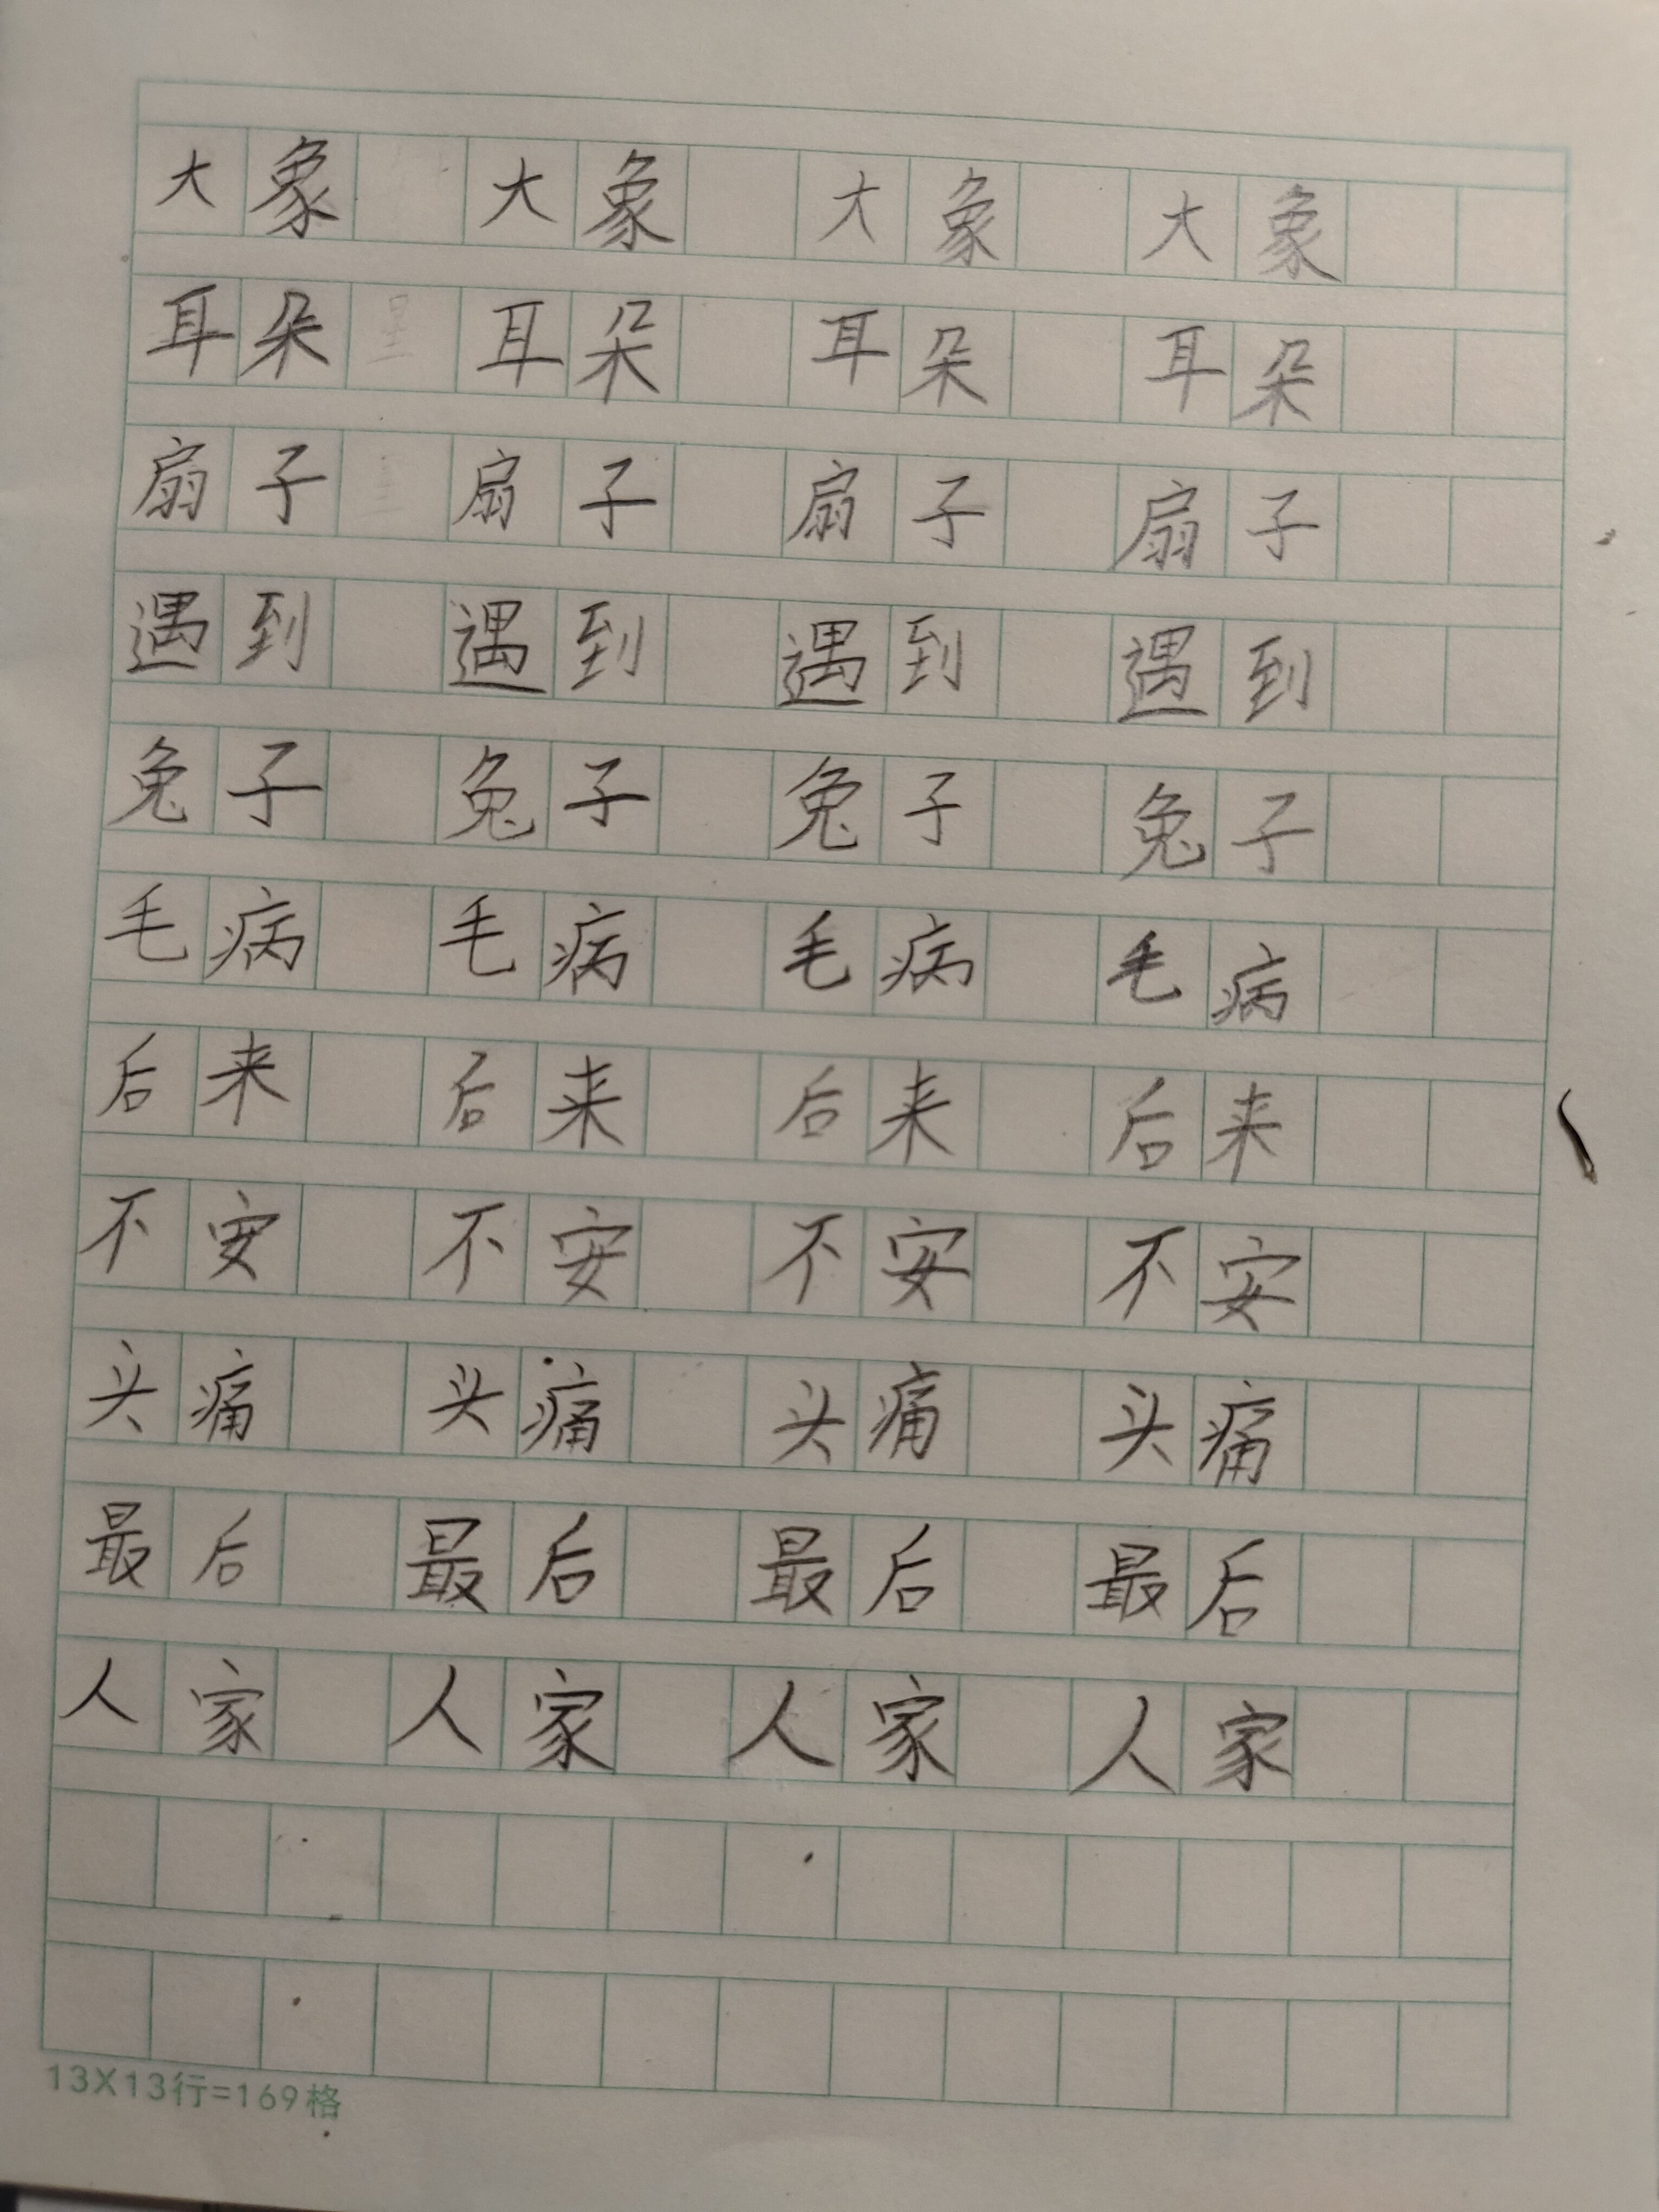 大象 大象 大象 大象
耳朵 耳朵 耳朵 耳朵
扇子 扇子 扇子 扇子
遇到 遇到 遇到 遇到
兔子 兔子 兔子 兔子
毛病 毛病 毛病 毛病
后来 后来 后来 后来
不安 不安 不安 不安
头痛 头痛 头痛 头痛
最后 最后 最后 最后
人家 人家 人家 人家
13X13行=169格